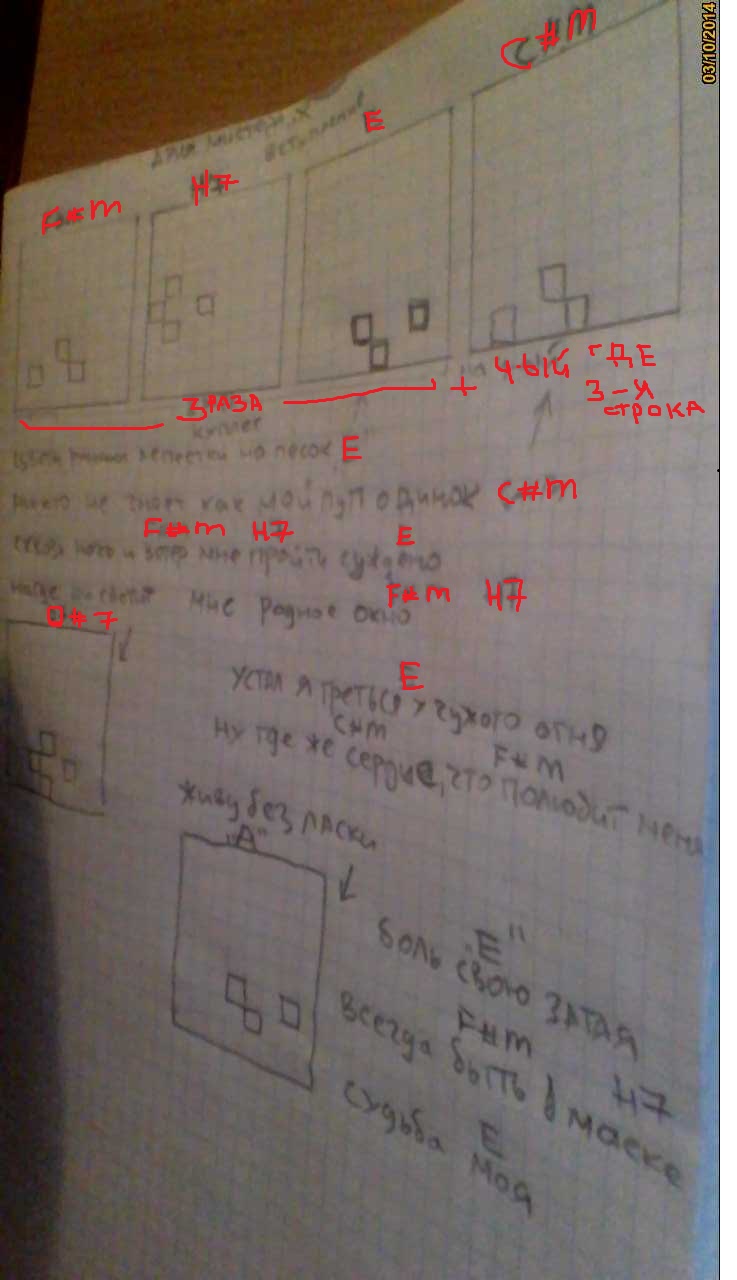 03/10/2014
C#m
E
вступление
H7
F#m
3 РАЗА + 4-ЫЙ ГДЕ
3-Я
СТРОКА
куплет
лепестки на песок "E"
никто не знает как мой путь одинок C#m
F#m H7 E
сквозь ночь и ветер мне пройти суждено
F#m H7
мне родное окно
D#7
E
УСТАЛ Я ГРЕТЬСЯ У ЧУЖОГО ОГНЯ
C#m F#m
НУ ГДЕ ЖЕ СЕРДЦЕ, ЧТО ПОЛЮБИТ МЕНЯ
живу без ласки
"A"
"E"
БОЛЬ СВОЮ ЗАТАЯ
F#m H7
всегда быть в маске
E
судьба моя